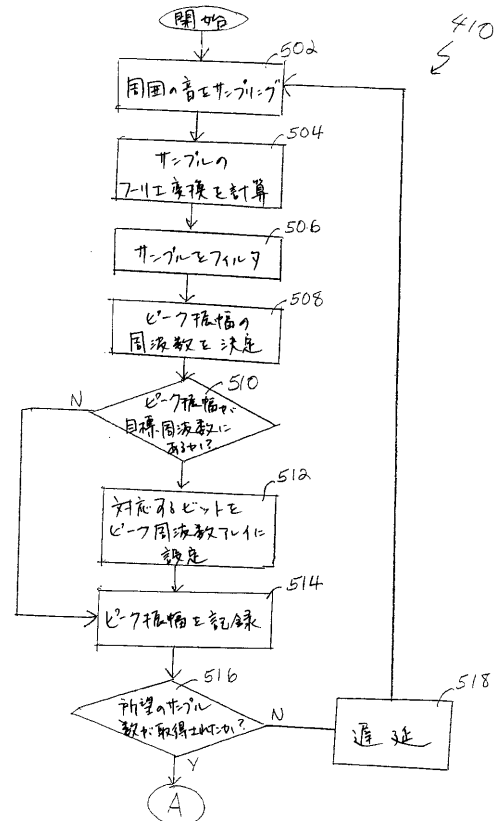 開始
410
502
周囲の音をサンプリング
504
サンプルの
フーリエ変換を計算
506
サンプルをフィルタ
508
ピーク振幅の
周波数を決定
510
N
ピーク振幅が
目標周波数に
あるか?
512
対応するビットを
ピーク周波数アレイに
設定
514
ピーク振幅を記録
516
所望のサンプル
数が取得されたか?
N
518
遅延
Y
A